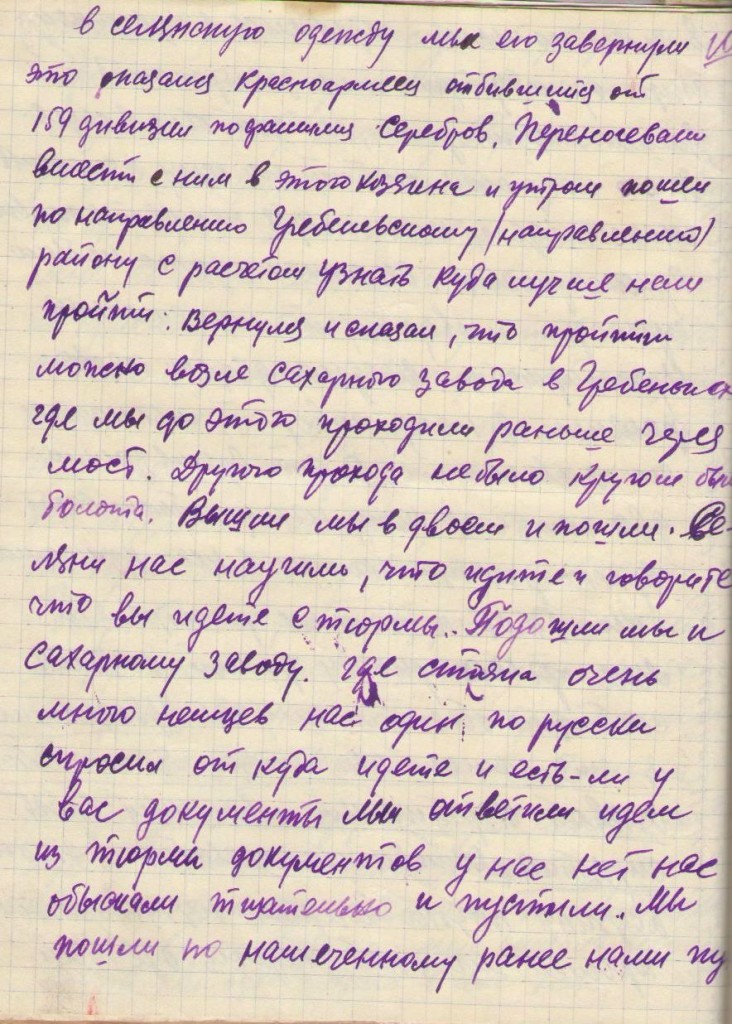 в селянскую одежду мы его завернули
это оказался красноармеец отбившийся от
159 дивизии по фамилии Серебров. Переночевали
вместе с ним в этого хозяина и утром пошли
по направлению Гребеньскому (направлению)
району с расчетом узнать куда лучше нам
пройти. Вернулся и сказал, что пройти
можно возле сахарного завода в
где мы до этого проходили раньше через
мост. Другого прохода не было кругом
болота. Вышли мы в двоем и пошли. Се-
ляни нас научили, что идите и говорите
что вы идете с тюрмы. Подошли мы к
сахарному заводу. где стояла очень
много немцев нас один по русски
спросил от куда идете и есть-ли у
вас документы мы ответили идем
из тюрмы документов у нас нет нас
обыскали тщательно и пустили. Мы
пошли по намеченному ранее нами пу